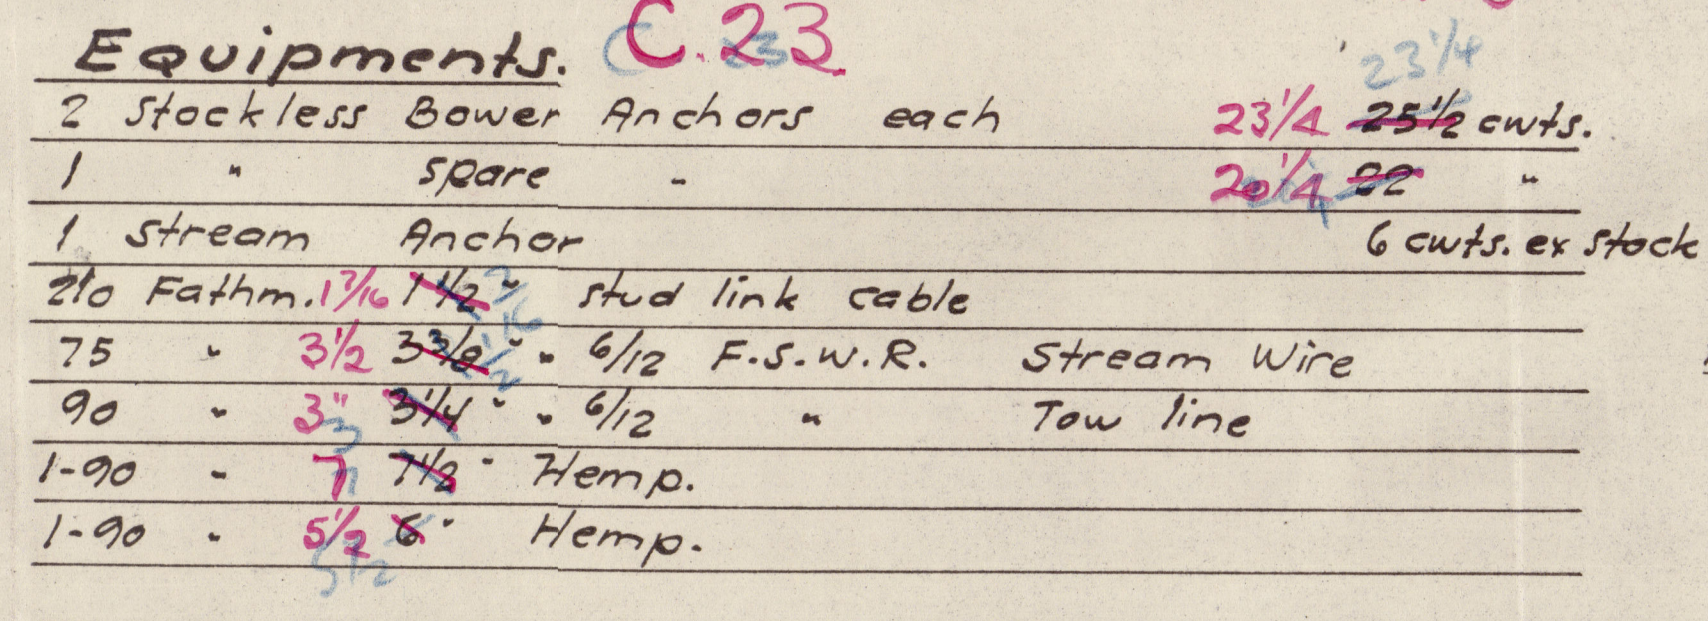 Equipments. C.23
23 1/4
2 Stockless Bower Anchors each 23 1/4 25 1/2 cwts.
1 " spare " 20 1/4 22 "
1 Stream Anchor 6 cwts. ex stock
210 Fathm. 1 7/16 1 1/2" stud link cable
75 " 3 1/2 3 3/8" " 6/12 F.S.W.R. Stream Wire
90 " 3" 3 1/4" " 6/12 " Tow line
1-90 " 7 7 1/2" Hemp.
1-90 " 5 1/2 6" Hemp.
5 1/2